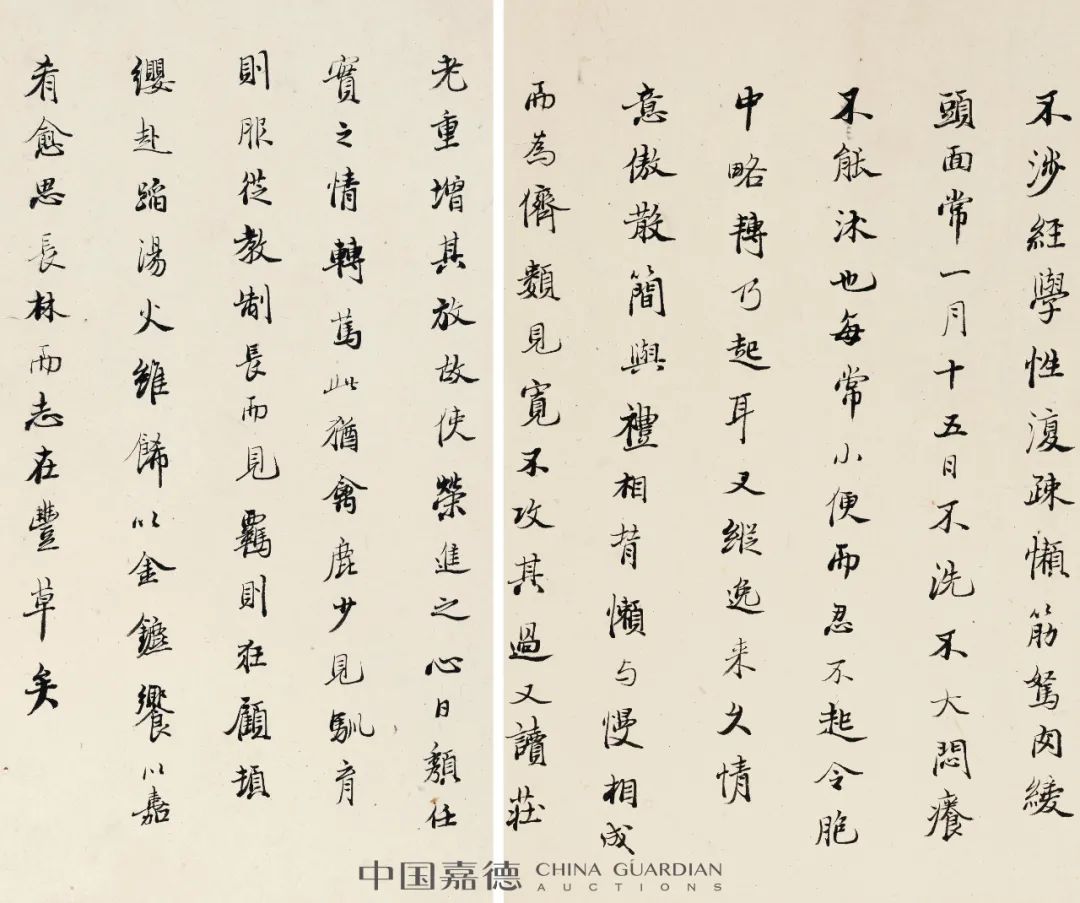 不涉經學性復疎懶筋駑肉緩
頭面常一月十五日不洗不大悶癢
不能沐也每常小便而忍不起令胞
中略轉乃起耳又縱逸来久情
意傲散簡與禮相背懶与慢相成
而為儕類見寛不攻其過又讀莊
老重增其放故使榮進之心日頽任
實之情轉篤此猶禽鹿少見馴育
則服從教制長而見羈則狂顧頓
纓赴蹈湯火雖餙以金鑣饗以嘉
肴愈思長林而志在豐草矣
中国嘉德 CHINA GUARDIAN AUCTIONS